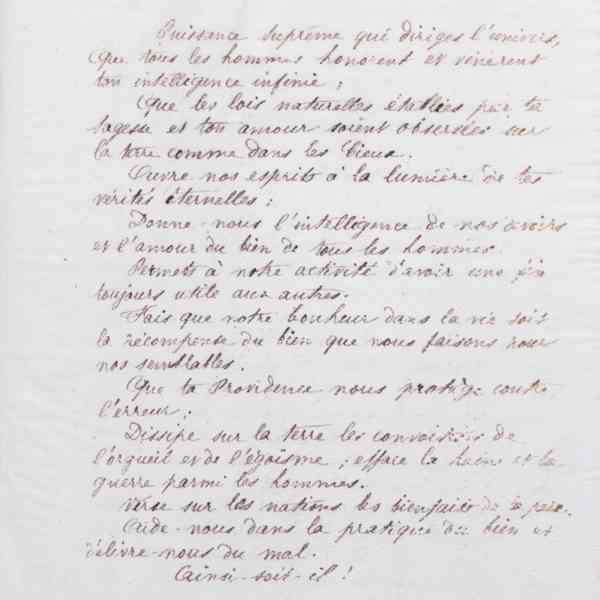 Puissance Suprême qui diriges l'univers,
Que tous les hommes honorent et vénèrent
ton intelligence infinie ;
Que les lois naturelles établies par ta
sagesse et ton amour soient observées sur
la terre comme dans les Cieux.
Ouvre nos esprits à la lumière de tes
vérités éternelles ;
Donne-nous l'intelligence de nos devoirs
et l'amour du bien de tous les hommes.
Permets à notre activité d'avoir une fin
toujours utile aux autres.
Fais que notre bonheur dans la vie soit
la récompense du bien que nous faisons pour
nos semblables.
Que ta Providence nous protège contre
l'erreur ;
Dissipe sur la terre les convoitises de
l'orgueil et de l'égoïsme ; efface la haine et la
guerre parmi les hommes.
Verse sur les nations les bienfaits de la paix.
Aide-nous dans la pratique du bien et
délivre-nous du mal.
Ainsi-soit-il !